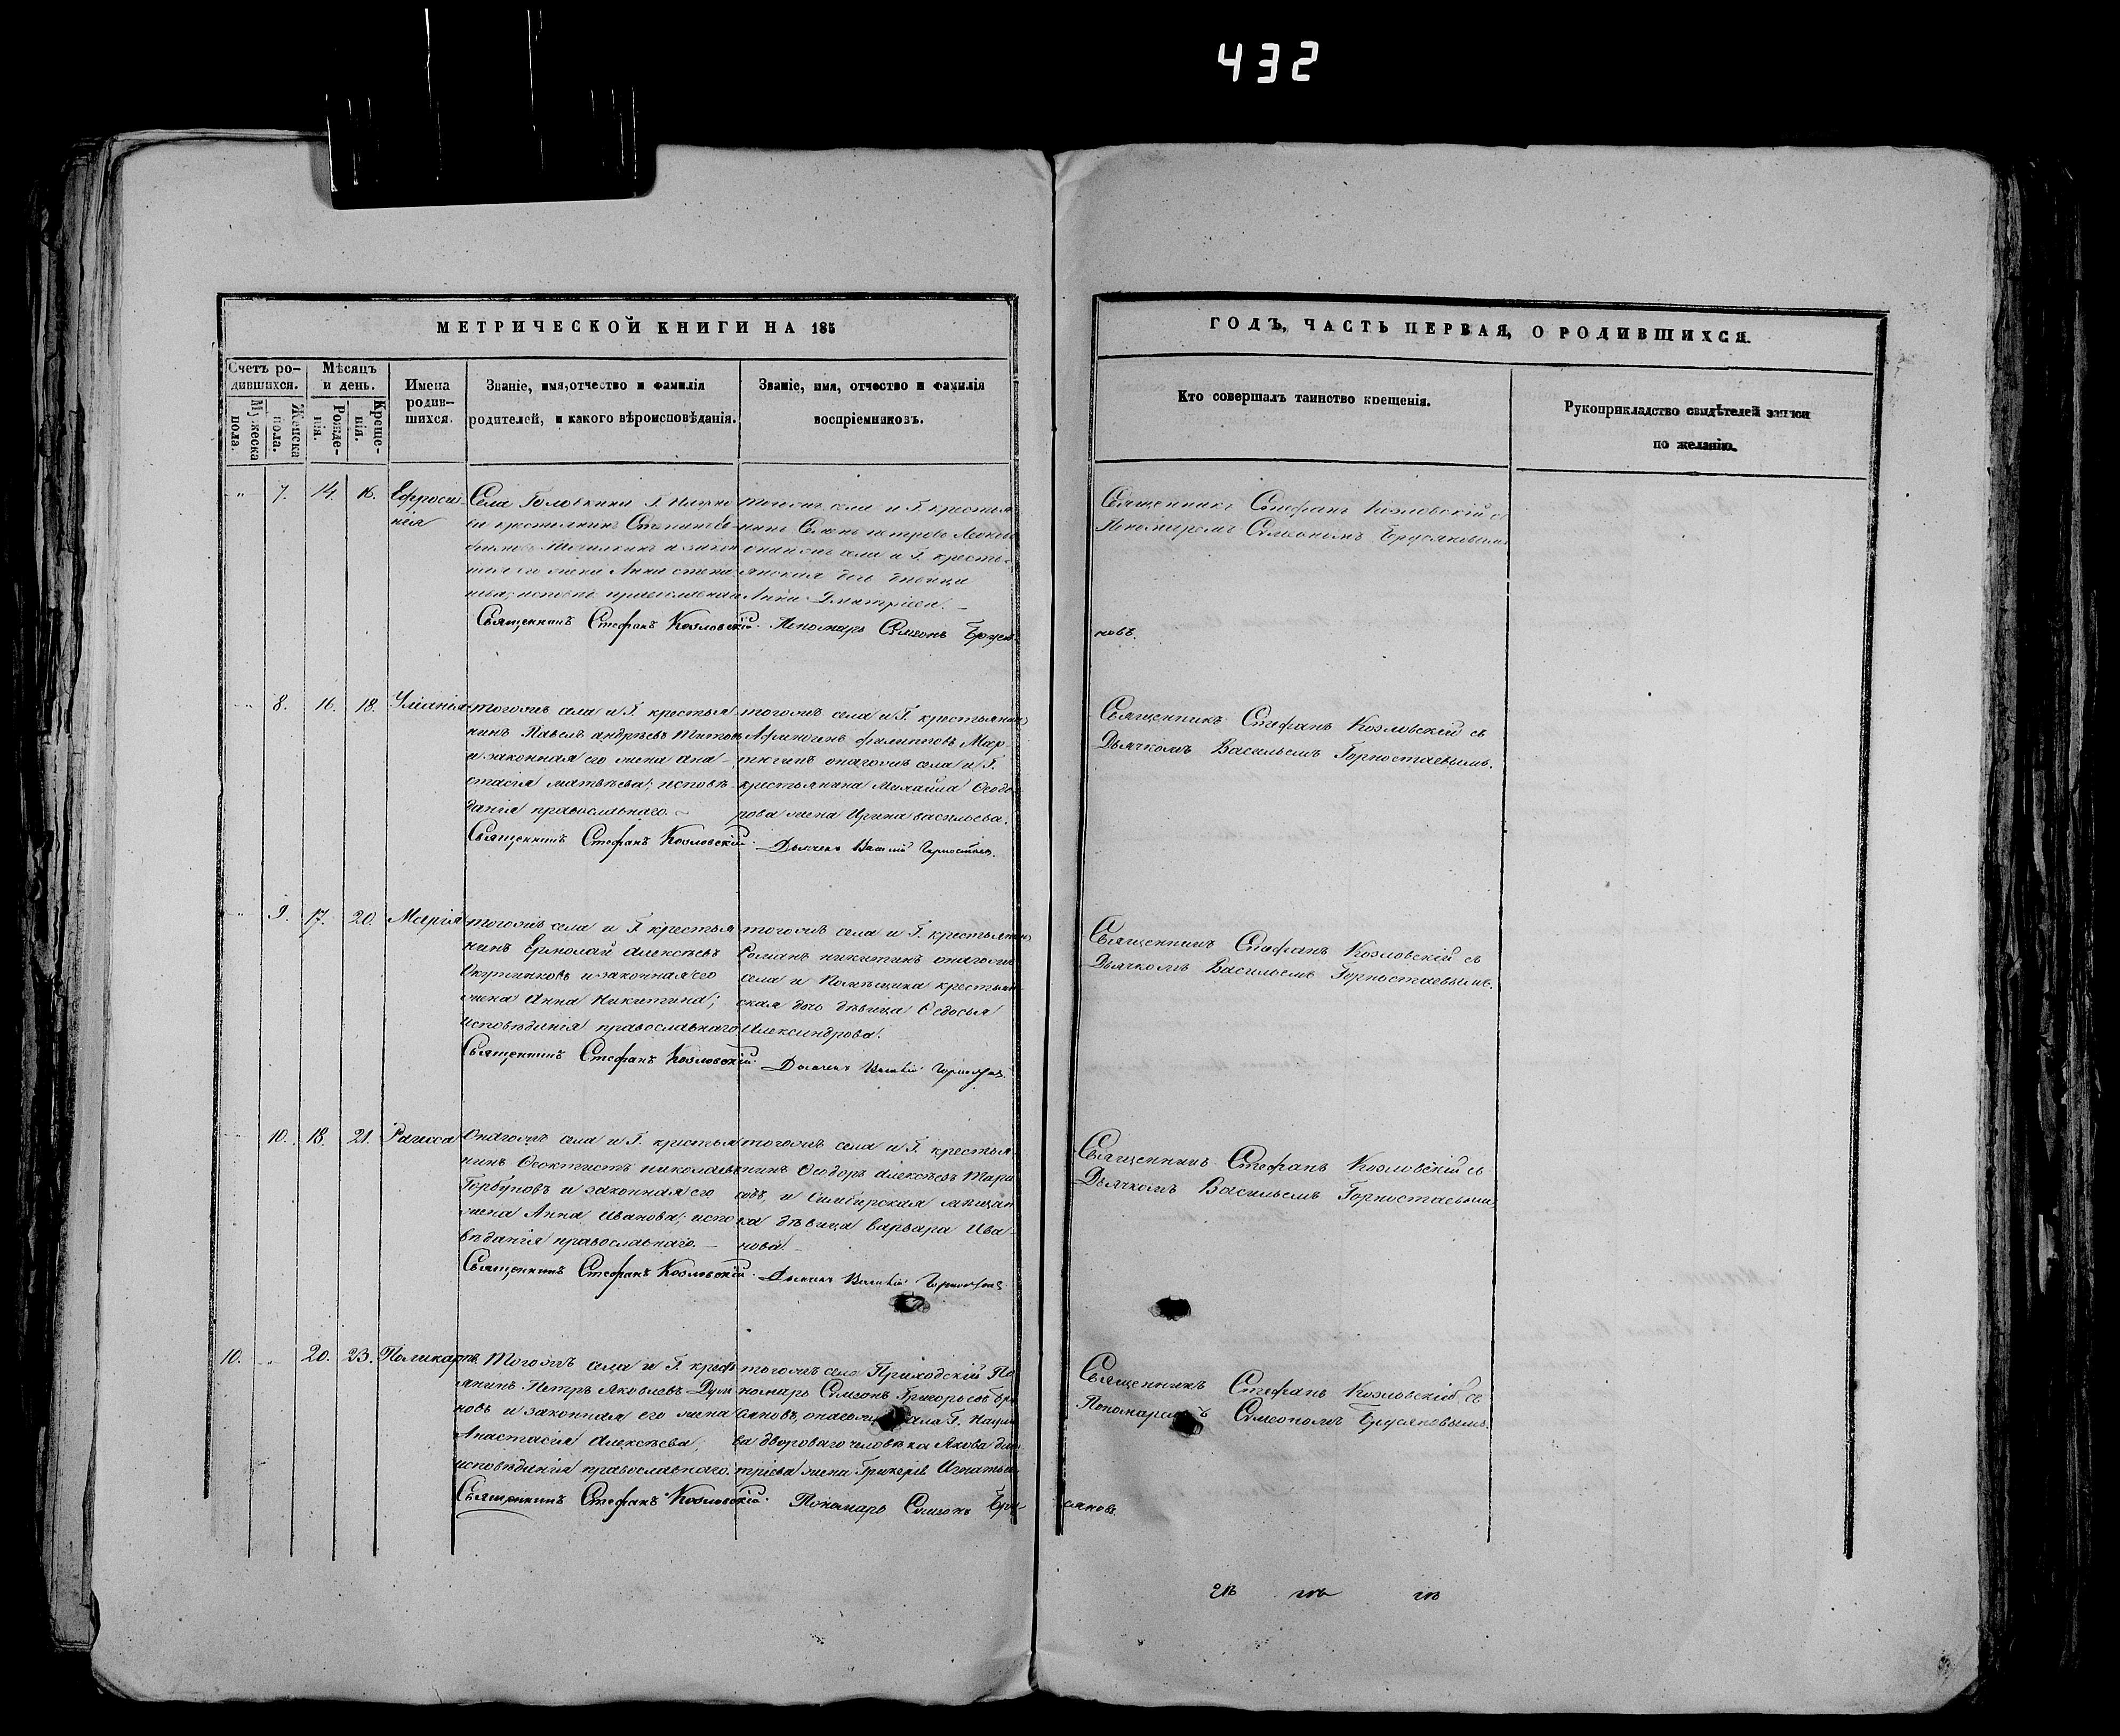 432
МЕТРИЧЕСКОЙ КНИГИ НА 185
Счетъ ро-
дившихся.
Мужеска
пола.
Женска
пола.
Мѣсяцъ
и день.
Рожде-
нія.
Креще-
нія.
Имена
родив-
шихся.
Званіе, имя, отчество и фамилія
родителей, и какого вѣроисповѣданія.
Званіе, имя, отчество и фамилія
воспріемниковъ.
ГОДЪ, ЧАСТЬ ПЕРВАЯ, О РОДИВШИХСЯ.
Кто совершалъ таинство крещенія.
Рукоприкладство свидѣтелей записи
по желанію.
7. 14. 16. Ефроси
нія
Села Головкина Г.
жена Анна
Священникъ Стефанъ Козловскій.
тогожъ села и Г. крестья
села и Г. крестья
Анна Дмитріева.
Пономарь Симеонъ Бруся
Священникъ Стефанъ Козловскій с
Пономаремъ Симеономъ Брусяновым
новъ.
8. 16. 18. Уліанія
тогожъ села и Г. крестья
нинъ Павелъ андреевъ Титовъ
и законная его жена Ана
стасія матвѣева; исповѣ
данія православнаго.
Священникъ Стефанъ Козловскій.
тогожъ села и Г. крестьянин
филипповъ Мар
онагожъ села и Г.
крестьянина Михаила Ѳеодо
рова жена Ирина васильева.
Дьячекъ Василій Горностаев.
Священникъ Стефанъ Козловскій съ
Дьячкомъ Васильемъ Горностаевымъ.
9. 17. 20. Марія
тогожъ села и Г. крестья
нинъ Ермолай алексѣевъ
и законная его
жена Анна Никитина;
исповѣданія православнаго
Священникъ Стефанъ Козловскій.
тогожъ села и Г. крестьянин
Романъ никитинъ онагожъ
села и Помѣщика крестьян
ская дочь дѣвица Ѳедосья
Александрова.
Дьячекъ Василій
Священникъ Стефанъ Козловскій съ
Дьячкомъ Васильемъ Горностаевымъ.
10. 18. 21. Раисса
Онагожъ села и Г. крестья
нинъ Ѳеоктистъ николаевъ
Горбуновъ и законная его
жена Анна Иванова; испо
вѣданія православнаго.
Священникъ Стефанъ Козловскій.
тогожъ села и Г. крестья
нинъ Ѳеодоръ алексѣевъ Тара
совъ, и Симбирская мѣщан
ка дѣвица варвара Ива
нова.
Дьячекъ Василій
Священникъ Стефанъ Козловскій съ
Дьячкомъ Васильемъ Горностаевымъ
10. 20. 23. Поликарпъ
Тогожъ села и Г. крест
янинъ Петръ Яковлевъ
новъ и законная его жена
Анастасія алексѣева,
исповѣданія православнаго.
Священникъ Стефанъ Козловскій.
тогожъ села Приходскій По
номарь Симеонъ Григорьевъ Бру
сяновъ, Г. Наумо
ва двороваго человѣка Якова дми
тріева жена
Пономарь Симеонъ Бру-
Священникъ Стефанъ Козловскій съ
Пономаремъ Симеономъ Брусяновымъ.
сяновъ.